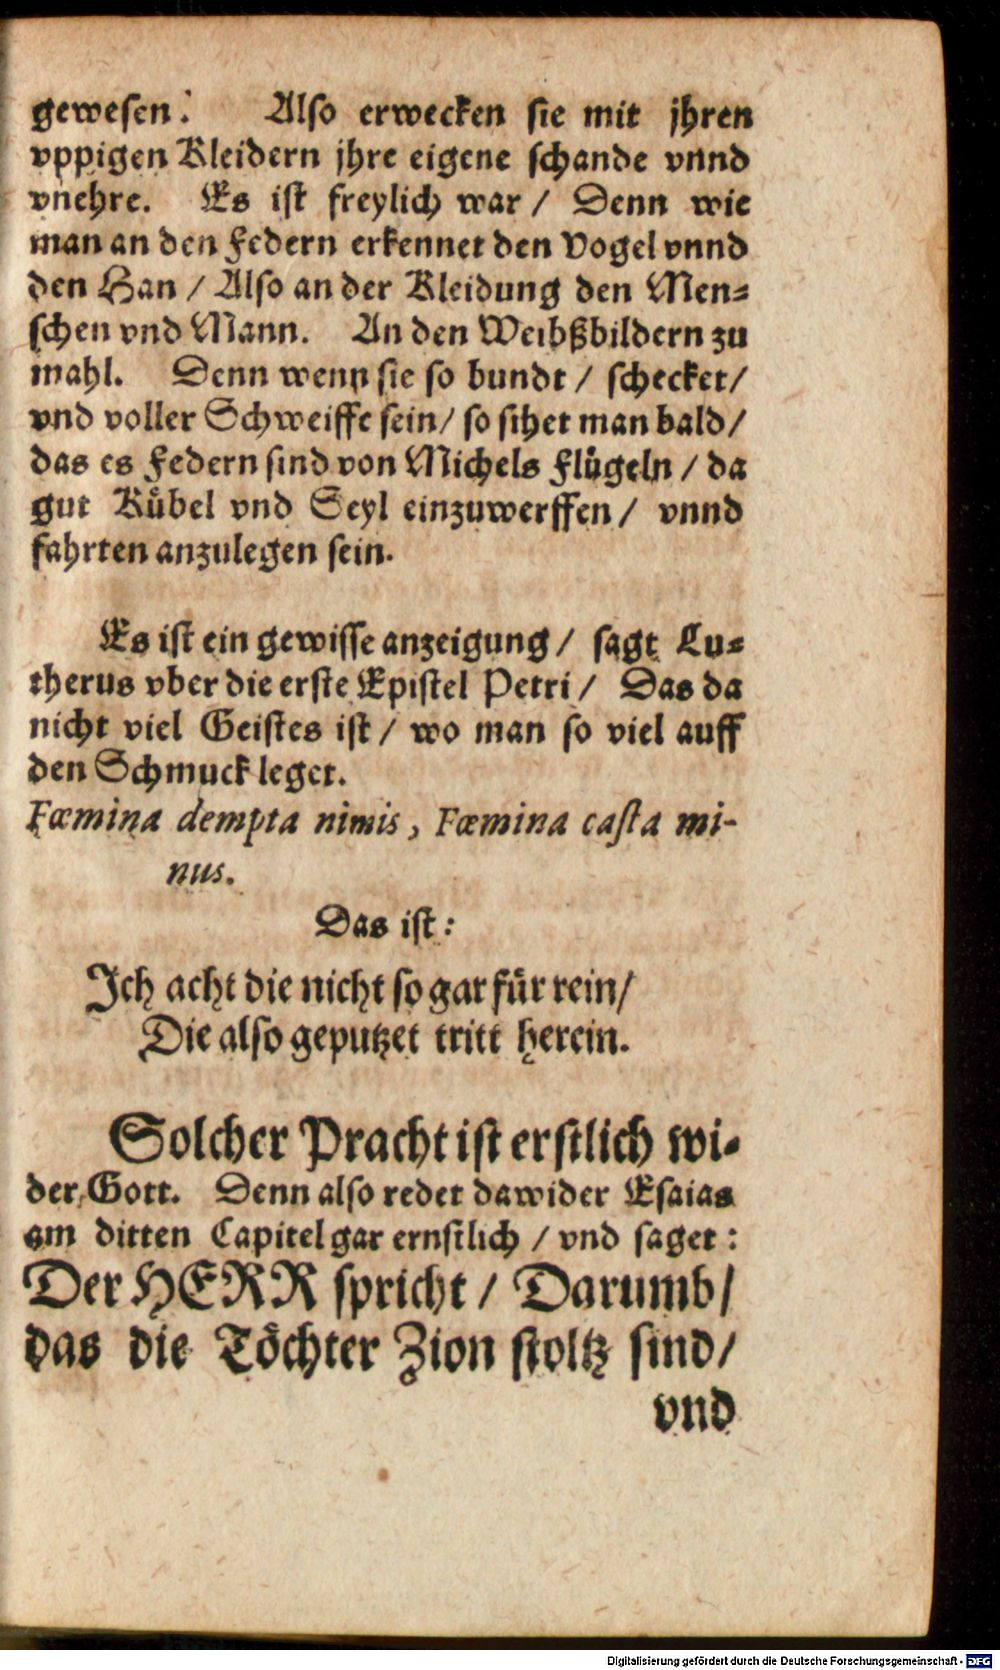 gewesen. Also erwecken sie mit jhren
vppigen Kleidern jhre eigene schande vnnd
vnehre. Es ist freylich war / Denn wie
man an den Federn erkennet den Vogel vnnd
den Han / Also an der Kleidung den Men⸗
schen vnd Mann. An den Weibßbildern zu
mahl. Denn wenn sie so bundt / schecket /
vnd voller Schweiffe sein / so sihet man bald /
das es Federn sind von Michels Flügeln / da
gut Kübel vnd Seyl einzuwerffen / vnnd
fahrten anzulegen sein.
Es ist ein gewisse anzeigung / sagt Lu⸗
therus vber die erste Epistel Petri / Das da
nicht viel Geistes ist / wo man so viel auff
den Schmuck leget.
Fœmina dempta nimis, Fœmina casta mi-
nus.
Das ist:
Ich acht die nicht so gar für rein /
Die also geputzet tritt herein.
Solcher Pracht ist erstlich wi⸗
der Gott. Denn also redet dawider Esaias
am ditten Capitel gar ernstlich / vnd saget:
Der HERR spricht / Darumb /
das die Töchter Zion stoltz sind /
vnd
Digitalisierung gefördert durch die Deutsche Forschungsgemeinschaft - DFG